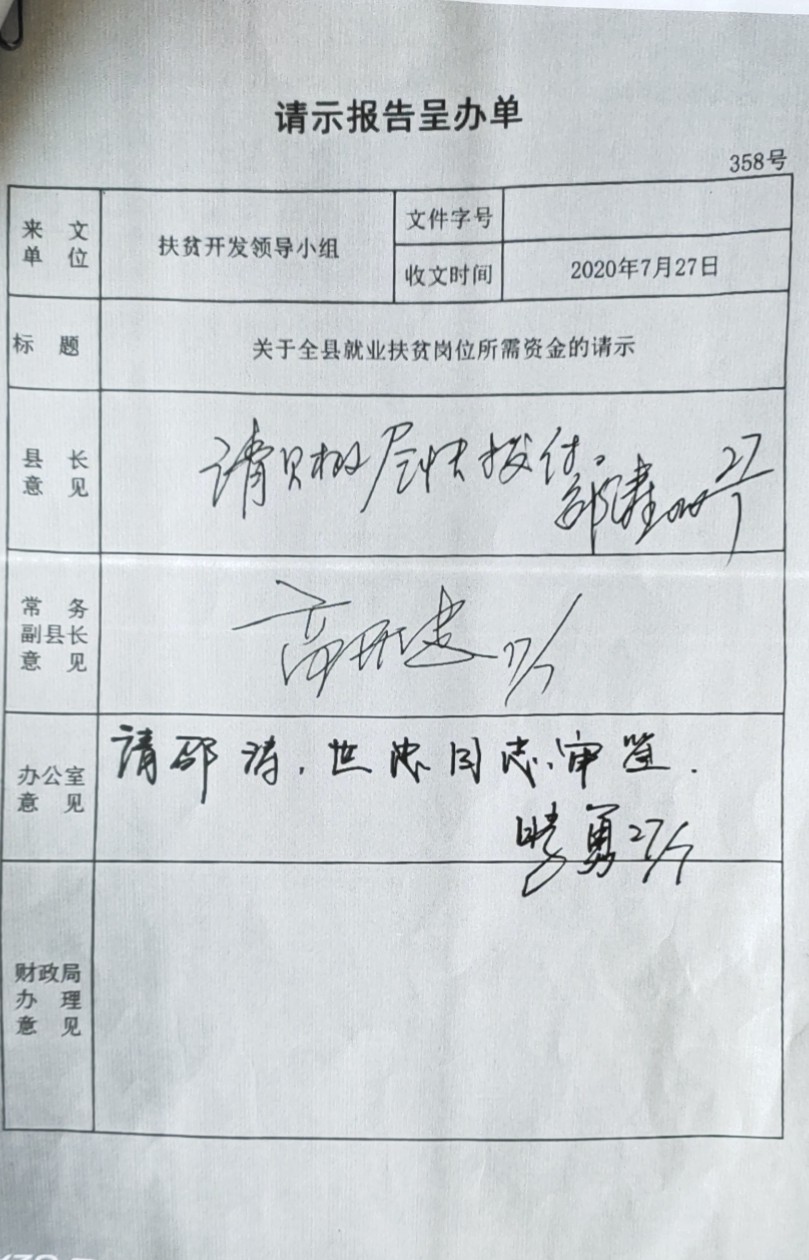 请示报告呈办单
358号
来文单位 扶贫开发领导小组 文件字号
收文时间 2020年7月27日
标题 关于全县就业扶贫岗位所需资金的请示
县长意见 请财政尽快拨付。
27/7
常务副县长意见 27/7
办公室意见 请邵涛、世忠同志审签.
晓勇 27/7
财政局办理意见